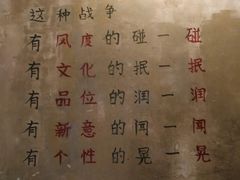 这种战争
有风度的碰一碰
有文化的抿一抿
有品位的润一润
有新意的闻一闻
有个性的晃一晃